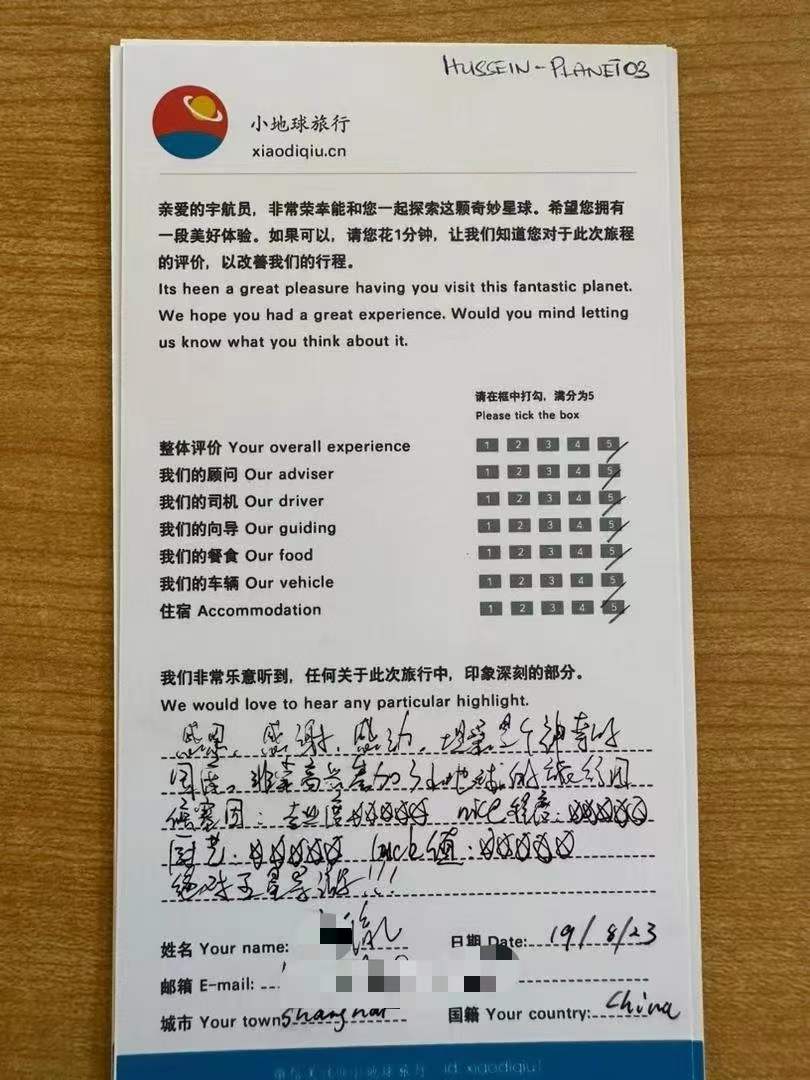 HUSSEIN-PLANET03
小地球旅行
xiaodiqiu.cn
亲爱的宇航员，非常荣幸能和您一起探索这颗奇妙星球。希望您拥有
一段美好体验。如果可以，请您花1分钟，让我们知道您对于此次旅程
的评价，以改善我们的行程。
Its heen a great pleasure having you visit this fantastic planet.
We hope you had a great experience. Would you mind letting
us know what you think about it.
请在框中打勾，满分为5
Please tick the box
整体评价 Your overall experience 1 2 3 4 5
我们的顾问 Our adviser 1 2 3 4 5
我们的司机 Our driver 1 2 3 4 5
我们的向导 Our guiding 1 2 3 4 5
我们的餐食 Our food 1 2 3 4 5
我们的车辆 Our vehicle 1 2 3 4 5
住宿 Accommodation 1 2 3 4 5
我们非常乐意听到，任何关于此次旅行中，印象深刻的部分。
We would love to hear any particular highlight.
感恩、感谢、感动，坦桑是个神奇的
国度。非常高兴参加了小地球的旅行团
侯赛因：专业度☆☆☆☆☆ nice程度：☆☆☆☆☆
颜艺：☆☆☆☆☆ luck值：☆☆☆☆☆
绝对五星导游!!!
姓名 Your name: 日期 Date: 19/8/23
邮箱 E-mail:
城市 Your town: Shanghai 国籍 Your country: China